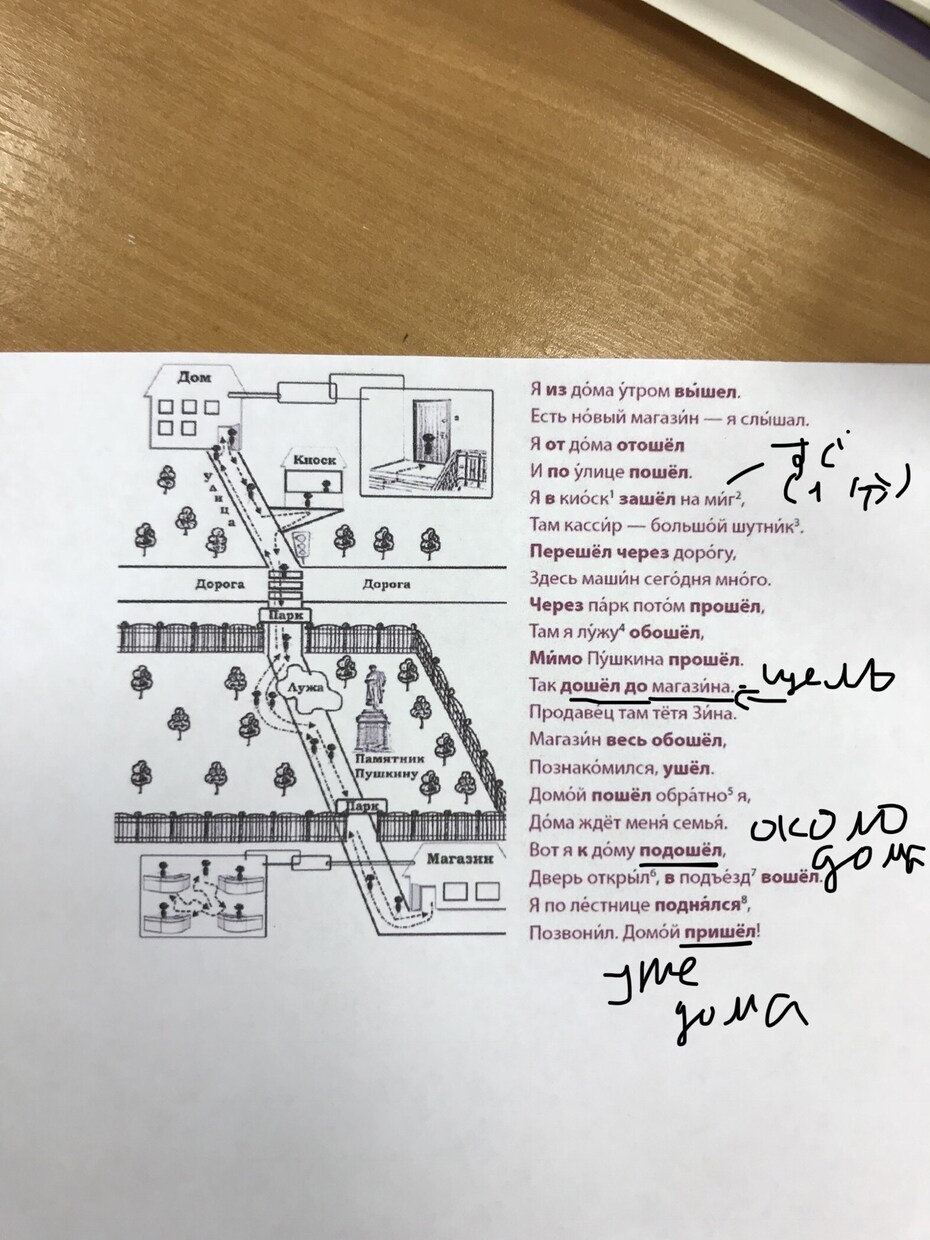 Дом
Киоск
улица
Дорога
Дорога
Парк
Лужа
Памятник
Пушкину
Парк
Магазин
Я из до́ма у́тром вы́шел.
Есть но́вый магази́н — я слы́шал.
Я от до́ма отошёл
И по у́лице пошёл.
Я в кио́ск¹ зашёл на ми́г²,
Там касси́р — большо́й шутни́к³.
Перешёл через доро́гу,
Здесь маши́н сего́дня мно́го.
Через па́рк пото́м прошёл,
Там я лу́жу⁴ обошёл,
Ми́мо Пу́шкина прошёл.
Так дошёл до магази́на.
Продаве́ц там тётя Зи́на.
Магази́н весь обошёл,
Познако́мился, ушёл.
Домо́й пошёл обра́тно⁵ я,
До́ма ждёт меня́ семья́.
Вот я к до́му подошёл,
Дверь откры́л⁶, в подъе́зд⁷ вошёл.
Я по ле́стнице подня́лся⁸,
Позвони́л. Домо́й пришёл!
щель
около
дома
уже
дома